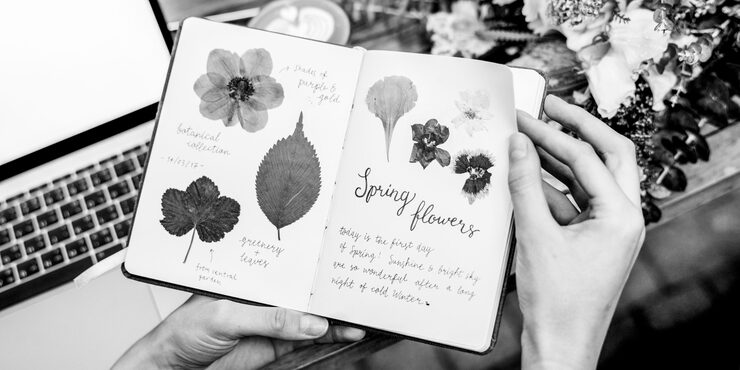 shades of
purple &
gold
botanical
collection
- 14/03/17 -
greenery +
leaves
from central
garden
Spring flowers
today is the first day
of Spring! Sunshine & bright sky
are so wonderful after a long
night of cold Winter.